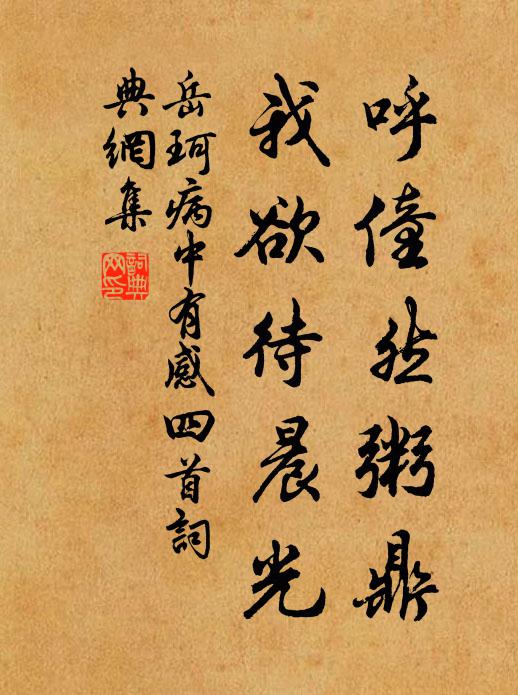 呼僮然粥鼎
我欲待晨光
岳珂病中有感四首詞
典網集
詞典
网印